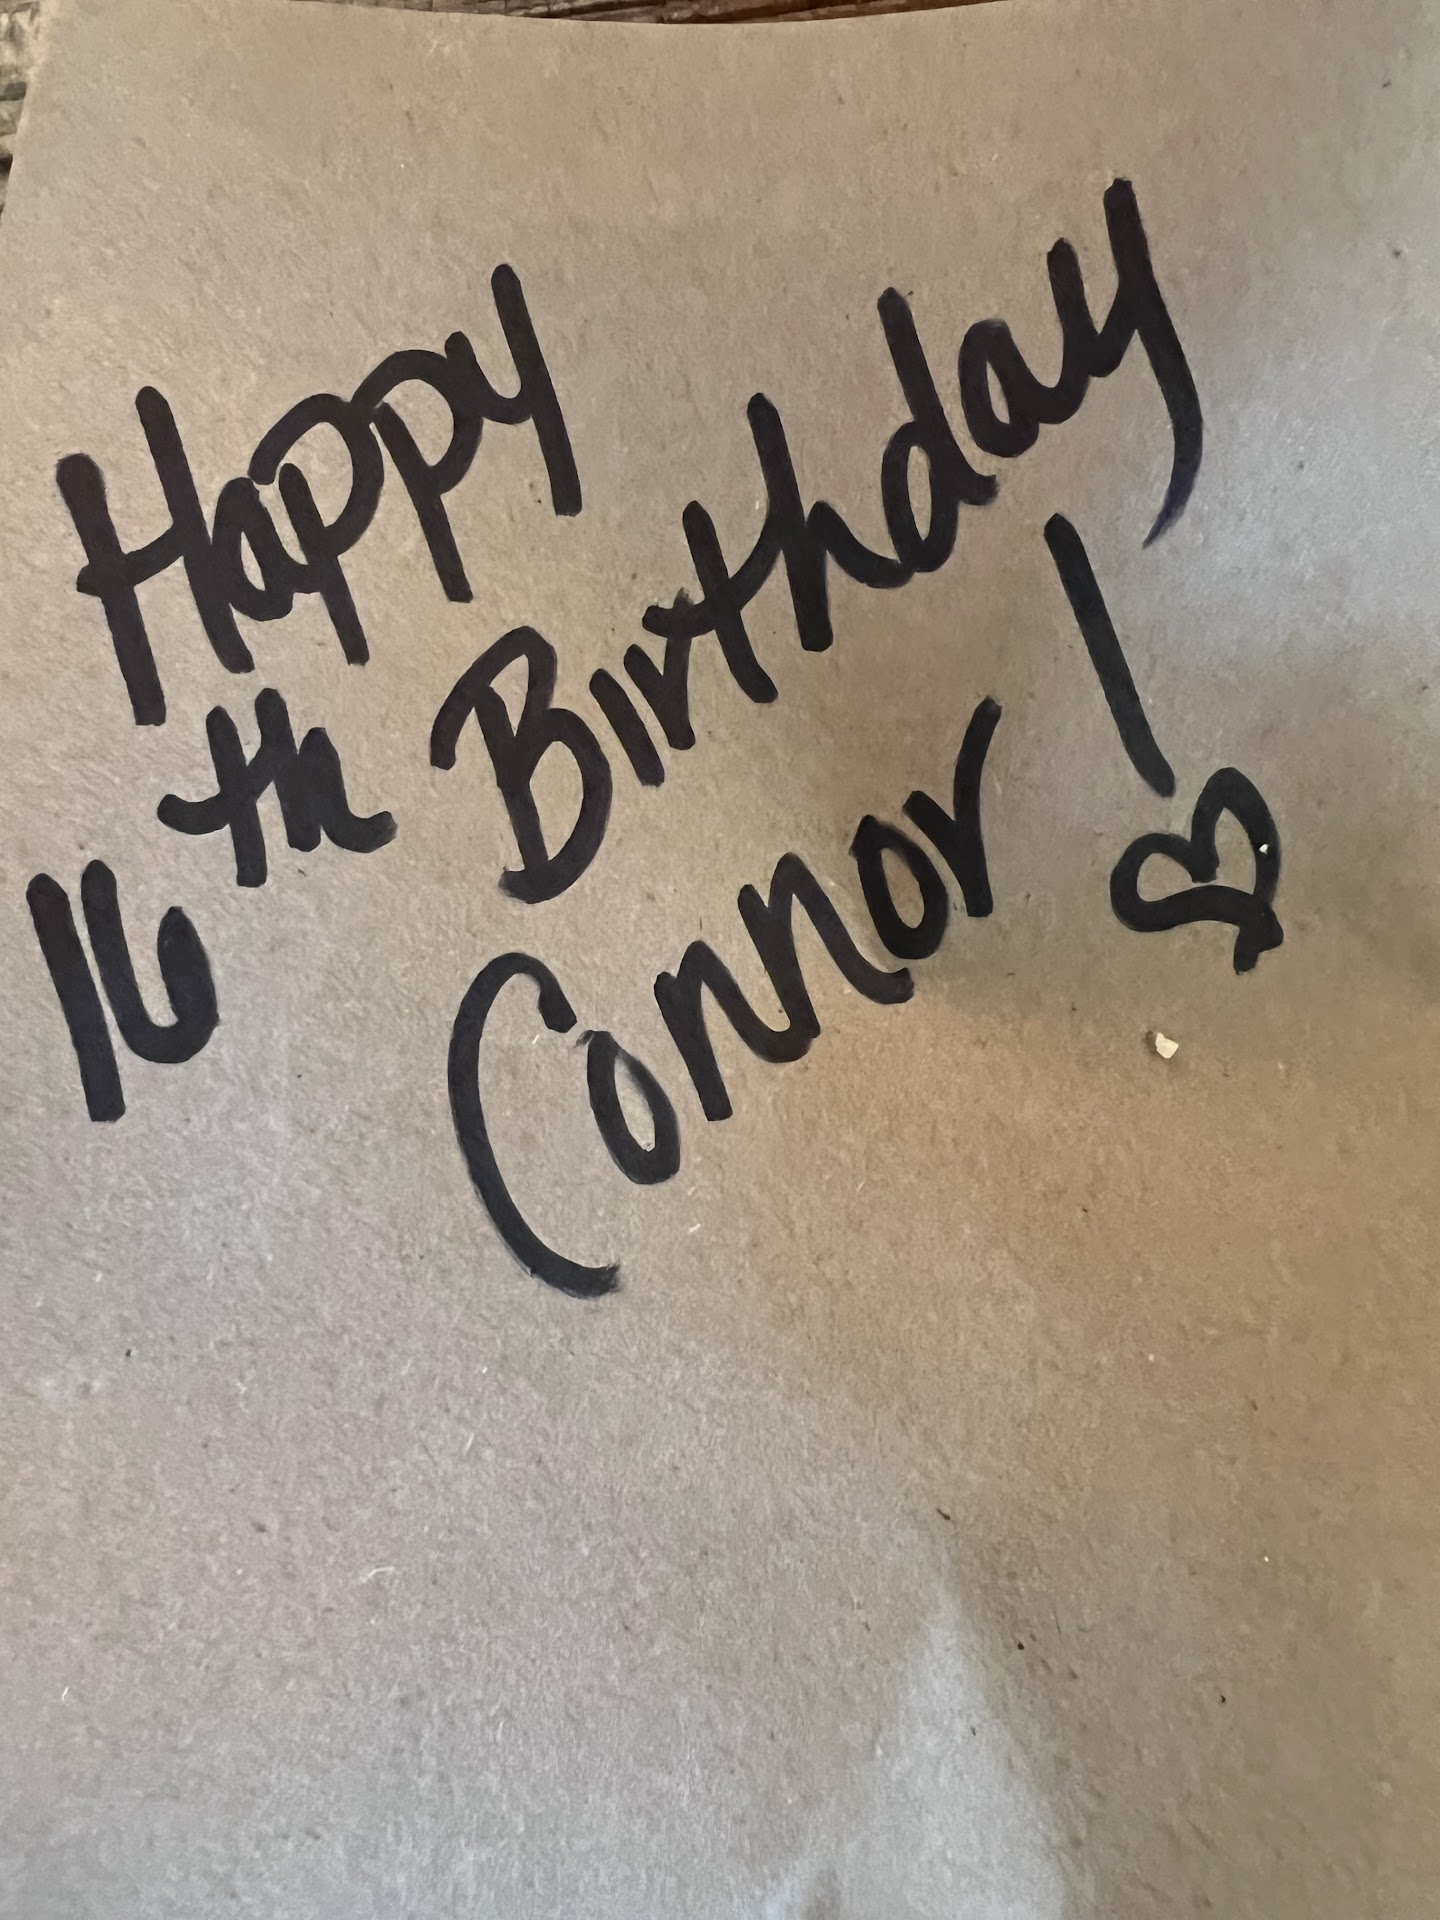 Happy
16th Birthday
Connor!